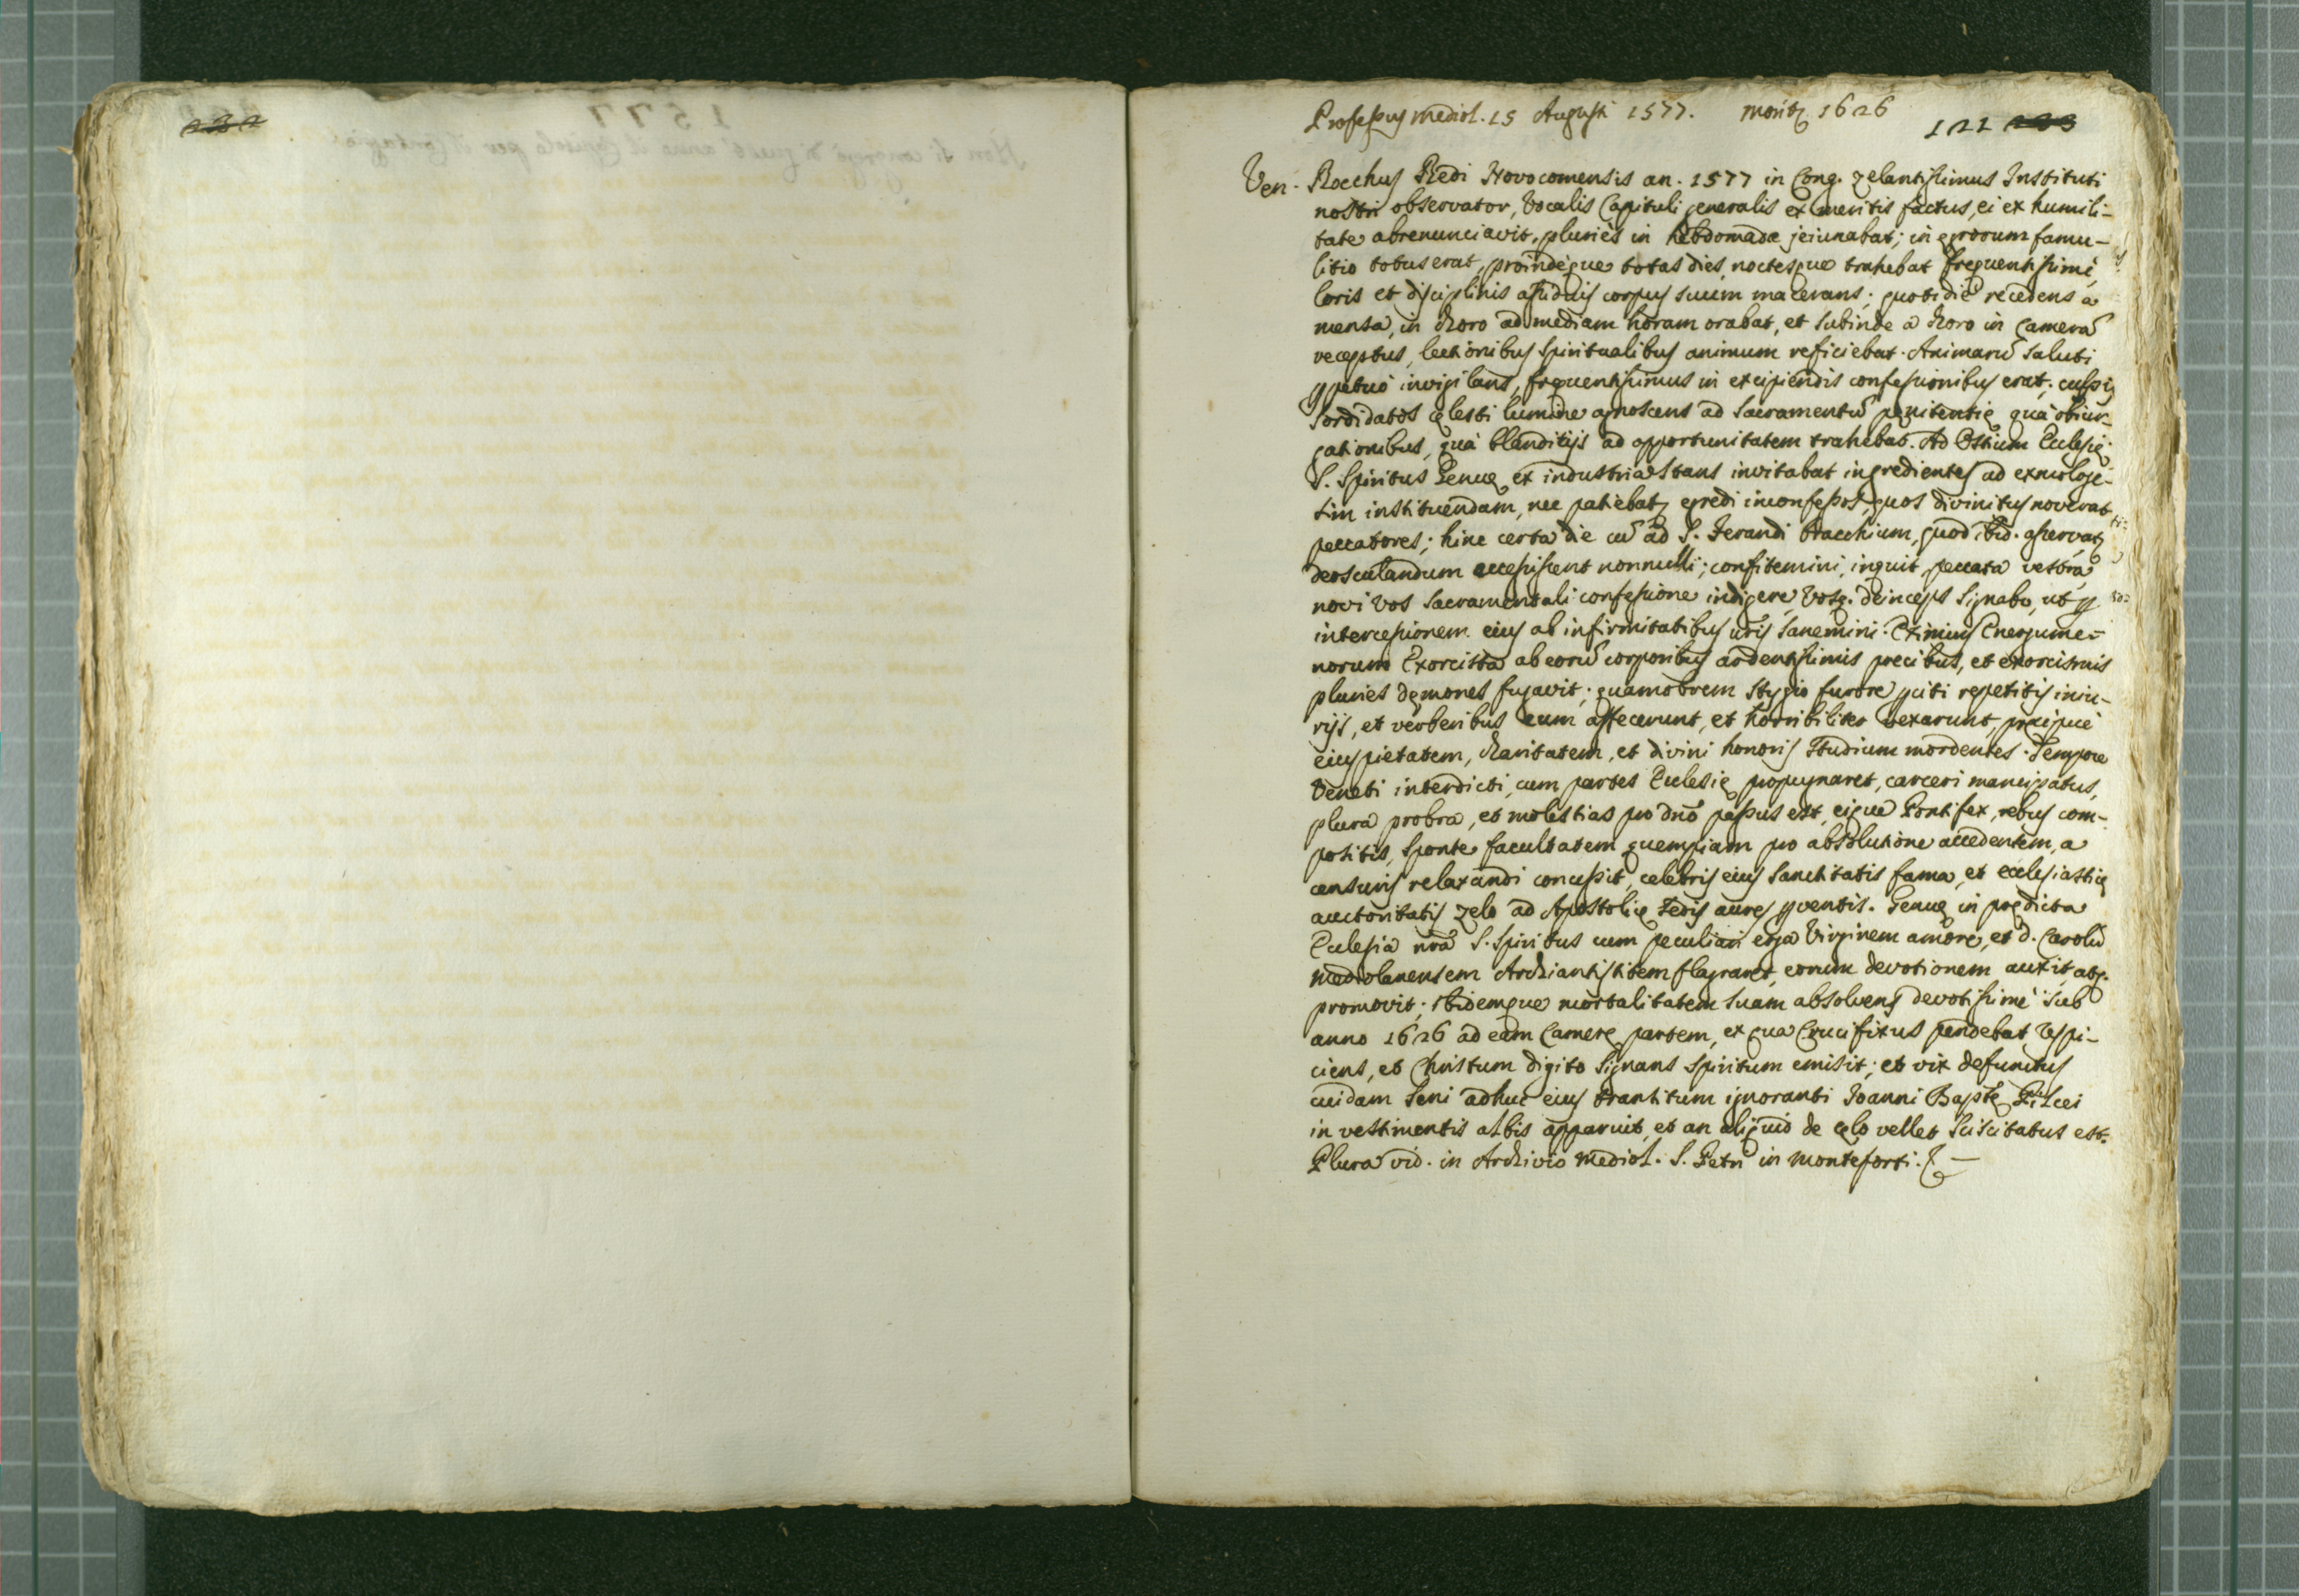 232
Professus Mediol. 15 Augusti 1577. moritʒ 1626
121 233
Ven. Rocchus Redi Novocomensis an. 1577 in Cong. zelantissimus Instituti
nostri observator, Vocalis Capituli generalis ex meritis factus, ei ex humili-
tate abrenunciavit, pluries in hebdomada jeiunabat; in egrorum famu-
litio totus erat, proindeque totas dies, noctesque trahebat frequentissimè,
loris et disciplinis assiduis corpus suum macerans; quotidiè recedens à
mensa, in choro ad mediam horam orabat, et subinde a choro in Camerã
receptus, lectionibus spiritualibus animum reficiebat. Animarũ saluti
ꝑpetuò invigilans, frequentissimus in excipiendis confessionibus erat; culpis
sordidatos cęlesti lumine agnoscens ad Sacramentũ pęnitentię quà obiur-
gationibus, quà blanditijs ad opportunitatem trahebat. Ad Ostium Ecclesię
S. Spiritus Genuę ex industria stans invitabat ingredientes ad exmologe-
sim instituendam, nec patiebatʒ egredi inconfessos, quos divinitus noverat
peccatores; hinc certa die cũ ad S. Gerardi bracchium, quod ibid. asservatʒ
deosculandum accessissent nonnulli; confitemini, inquit, peccata vestra,
novi vos sacramentali confessione indigere, vosq. deinceps signabo, ut ꝑ
intercessionem eius ab infirmitatibus vr̃is sanemini. Eximius Energume-
norum Exorcista ab eorũ corporibus ardentissimis precibus, et exorcismis
pluries dęmones fugavit; quamobrem stygio furore ꝑciti repetitis iniu-
rijs, et verberibus eum affecerunt, et horribiliter vexarunt, pręcipuè
eius pietatem, charitatem, et divini honoris studium mordentes. Tempore
Veneti interdicti, cum partes Ecclesię propugnaret, carceri mancipatus,
plura probra, et molestias pro dño passus est, eique Pontifex, rebus com-
positis, sponte facultatem quempiam pro absolutione accedentem, a
censuris relaxandi concessit, celebris eius sanctitatis fama, et ecclesiasticę
auctoritatis zelo ad Apostolicę Sedis aures ꝑventis. Genuę in prędicta
Ecclesia nr̃a S. Spiritus cum peculiari erga Virginem amore, et D. Carolũ
Mediolanensem Archiantistitem flagraret, eorum devotionem auxit, atq.
promovit; ibidemque mortalitatem suam absolvens devotissimè sub
anno 1626 ad eam Camerę partem, ex qua Crucifixus pendebat respi-
ciens, et Christum digito signans spiritum emisit; et vix defunctus
cuidam seni adhuc eius transitum ignoranti Joanni Baptę
in vestimentis albis apparuit, et an aliquid de cęlo vellet sciscitatus est.
Plura vid. in Archivio Mediol. S. Petri in monteforti.